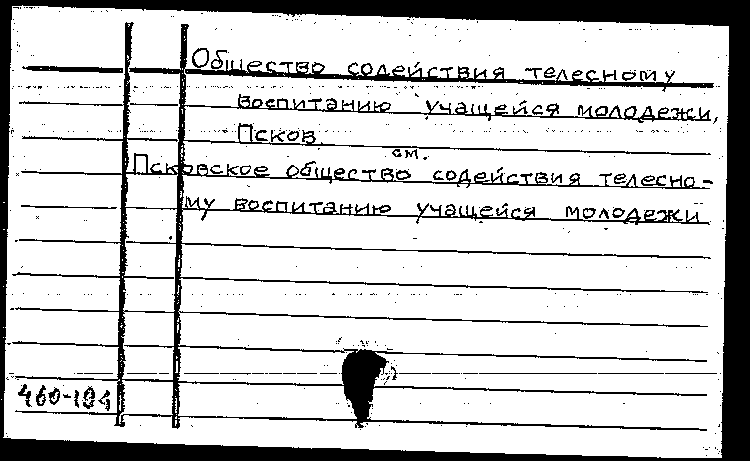 Общество содействия телесному
воспитанию учащейся молодежи,
Псков.
см.
Псковское общество содействия телесно-
му воспитанию учащейся молодежи
460-194